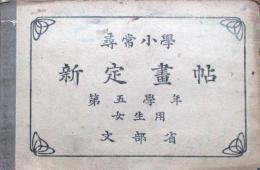 尋常小學
新定畫帖
第五學年
女生用
文部省